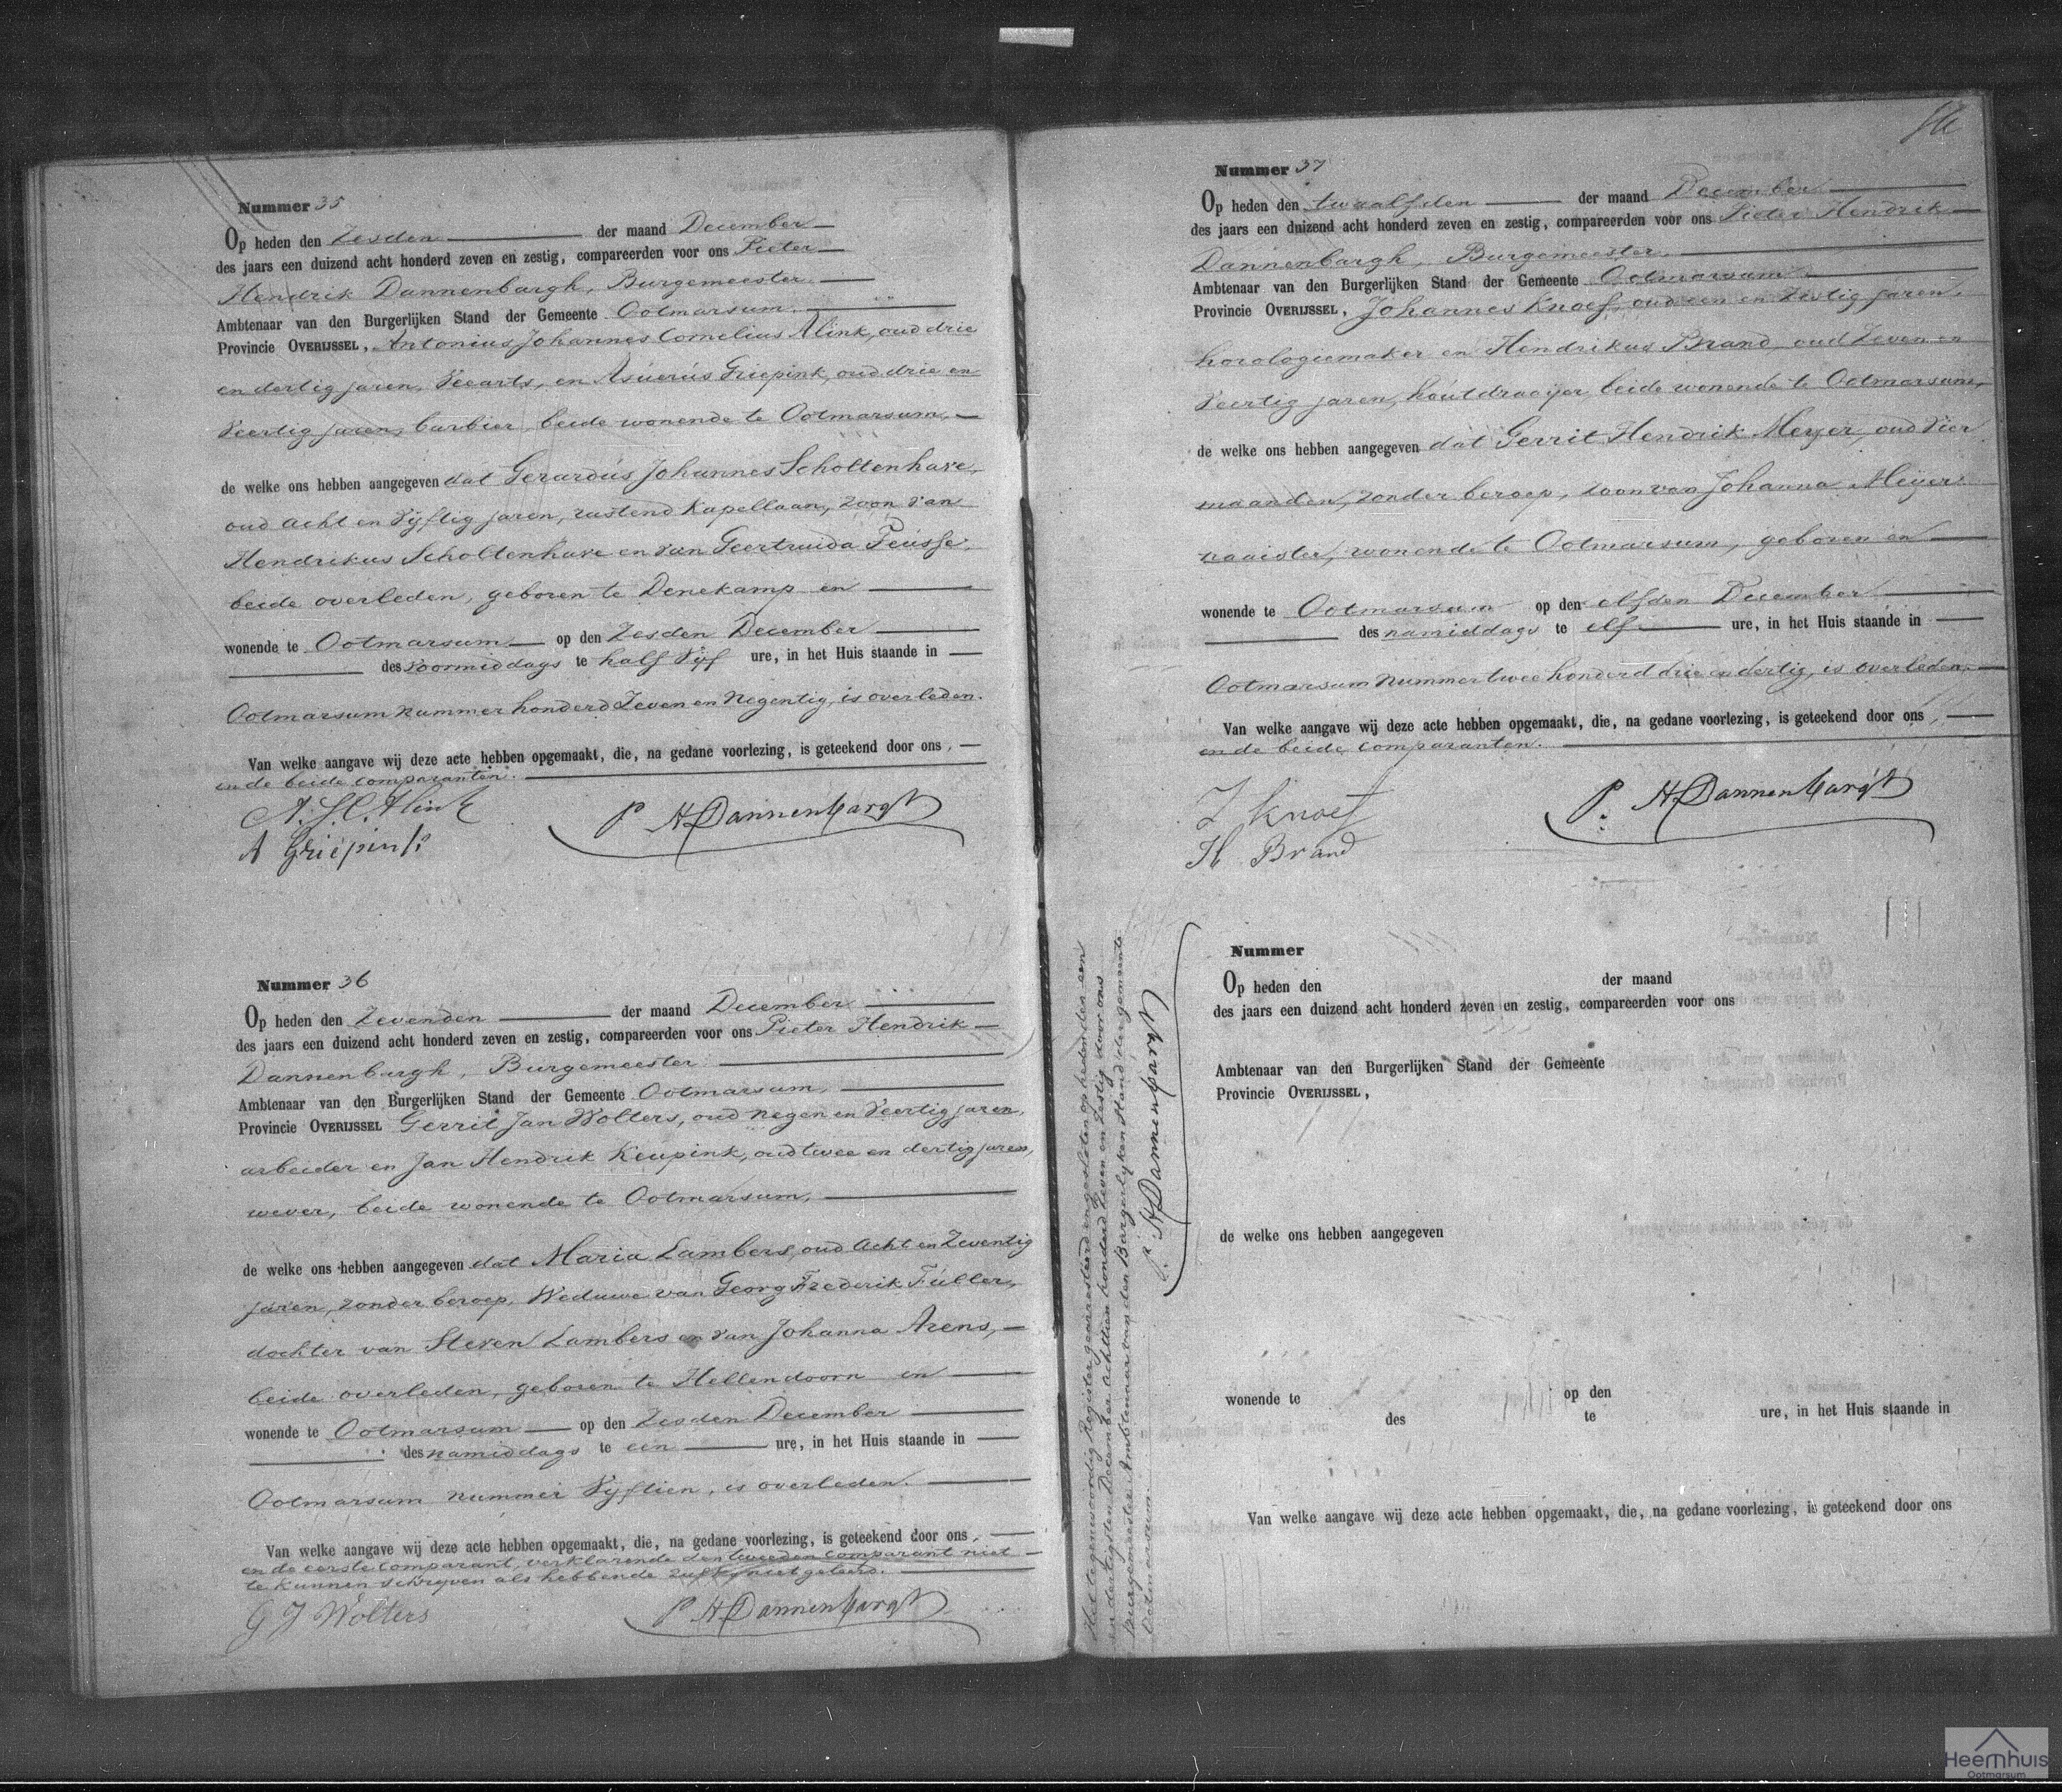 Nummer 35
Op heden den Zesden der maand December
des jaars een duizend acht honderd zeven en zestig, compareerden voor ons Pieter
Hendrik Dannenbargh, Burgemeester
Ambtenaar van den Burgerlijken Stand der Gemeente Ootmarsum.
Provincie OVERIJSSEL, Antonius Johannes Cornelius Alink, oud drie
en dertig jaren, Veearts, en Asuerús Griepink, oud drie en
Veertig jaren, barbier, beide wonende te Ootmarsum,
de welke ons hebben aangegeven dat Gerardús Johannes Scholtenhave,
oud acht en Vijftig jaren, rustend Kapellaan, zoon van
Hendrikus Scholtenhave en van Geertruida Peusse,
beide overleden, geboren te Denekamp en
wonende te Ootmarsum op den Zesden December
des voormiddags te half Vijf ure, in het Huis staande in
Ootmarsum nummer honderd Zeven en Negentig, is overleden.
Van welke aangave wij deze acte hebben opgemaakt, die, na gedane voorlezing, is geteekend door ons,
en de beide comparanten.
A. J. C. Alink
A Griepink
P H Dannenbargh
Nummer 36
Op heden den Zevenden der maand December
des jaars een duizend acht honderd zeven en zestig, compareerden voor ons Pieter Hendrik
Dannenbargh, Burgemeester
Ambtenaar van den Burgerlijken Stand der Gemeente Ootmarsum,
Provincie OVERIJSSEL Gerrit Jan Wolters, oud negen en Veertig jaren,
arbeider en Jan Hendrik Keupink, oud twee en dertig jaren,
wever, beide wonende te Ootmarsum,
de welke ons hebben aangegeven dat Maria Lambers, oud Acht en Zeventig
jaren, zonder beroep, Weduwe van Georg Frederik Fúller,
dochter van Steven Lambers en van Johanna Arens,
beide overleden, geboren te Hellendoorn en
wonende te Ootmarsum op den Zesden December
des namiddags te een ure, in het Huis staande in
Ootmarsum nummer Vijftien, is overleden.
Van welke aangave wij deze acte hebben opgemaakt, die, na gedane voorlezing, is geteekend door ons,
en de eerste comparant, verklarende den tweeden comparant niet
te kunnen schrijven als hebbende zulks niet geleerd.
G J Wolters
P H Dannenbargh
Nummer 37
Op heden den twaalfden der maand December
des jaars een duizend acht honderd zeven en zestig, compareerden voor ons Pieter Hendrik
Dannenbargh, Burgemeester,
Ambtenaar van den Burgerlijken Stand der Gemeente Ootmarsum
Provincie OVERIJSSEL, Johannes Knoef, oud een en Zestig jaren,
horologiemaker en Hendrikus Brand, oud Zeven en
Veertig jaren, hoútdraaijer, beide wonende te Ootmarsum,
de welke ons hebben aangegeven dat Gerrit Hendrik Meyer, oud Vier
maanden, zonder beroep, zoon van Johanna Meijer
naaister, wonende te Ootmarsum, geboren en
wonende te Ootmarsum op den elfden December
des namiddags te elf ure, in het Huis staande in
Ootmarsum nummer twee honderd drie en dertig, is overleden,
Van welke aangave wij deze acte hebben opgemaakt, die, na gedane voorlezing, is geteekend door ons,
en de beide comparanten.
J Knoef
H Brand
P. H Dannenbargh
Het tegenwoordig Register gearresteerd en gesloten op heden den een
en dertigsten December achttien honderd Zeven en Zestig door ons
Burgemeester Ambtenaar van den Burgerlijken Stand der gemeente
Ootmarsum.
P. H Dannenbargh
Nummer
Op heden den der maand
des jaars een duizend acht honderd zeven en zestig, compareerden voor ons
Ambtenaar van den Burgerlijken Stand der Gemeente
Provincie OVERIJSSEL,
de welke ons hebben aangegeven
wonende te op den
des te ure, in het Huis staande in
Van welke aangave wij deze acte hebben opgemaakt, die, na gedane voorlezing, is geteekend door ons
Heemhuis
Ootmarsum